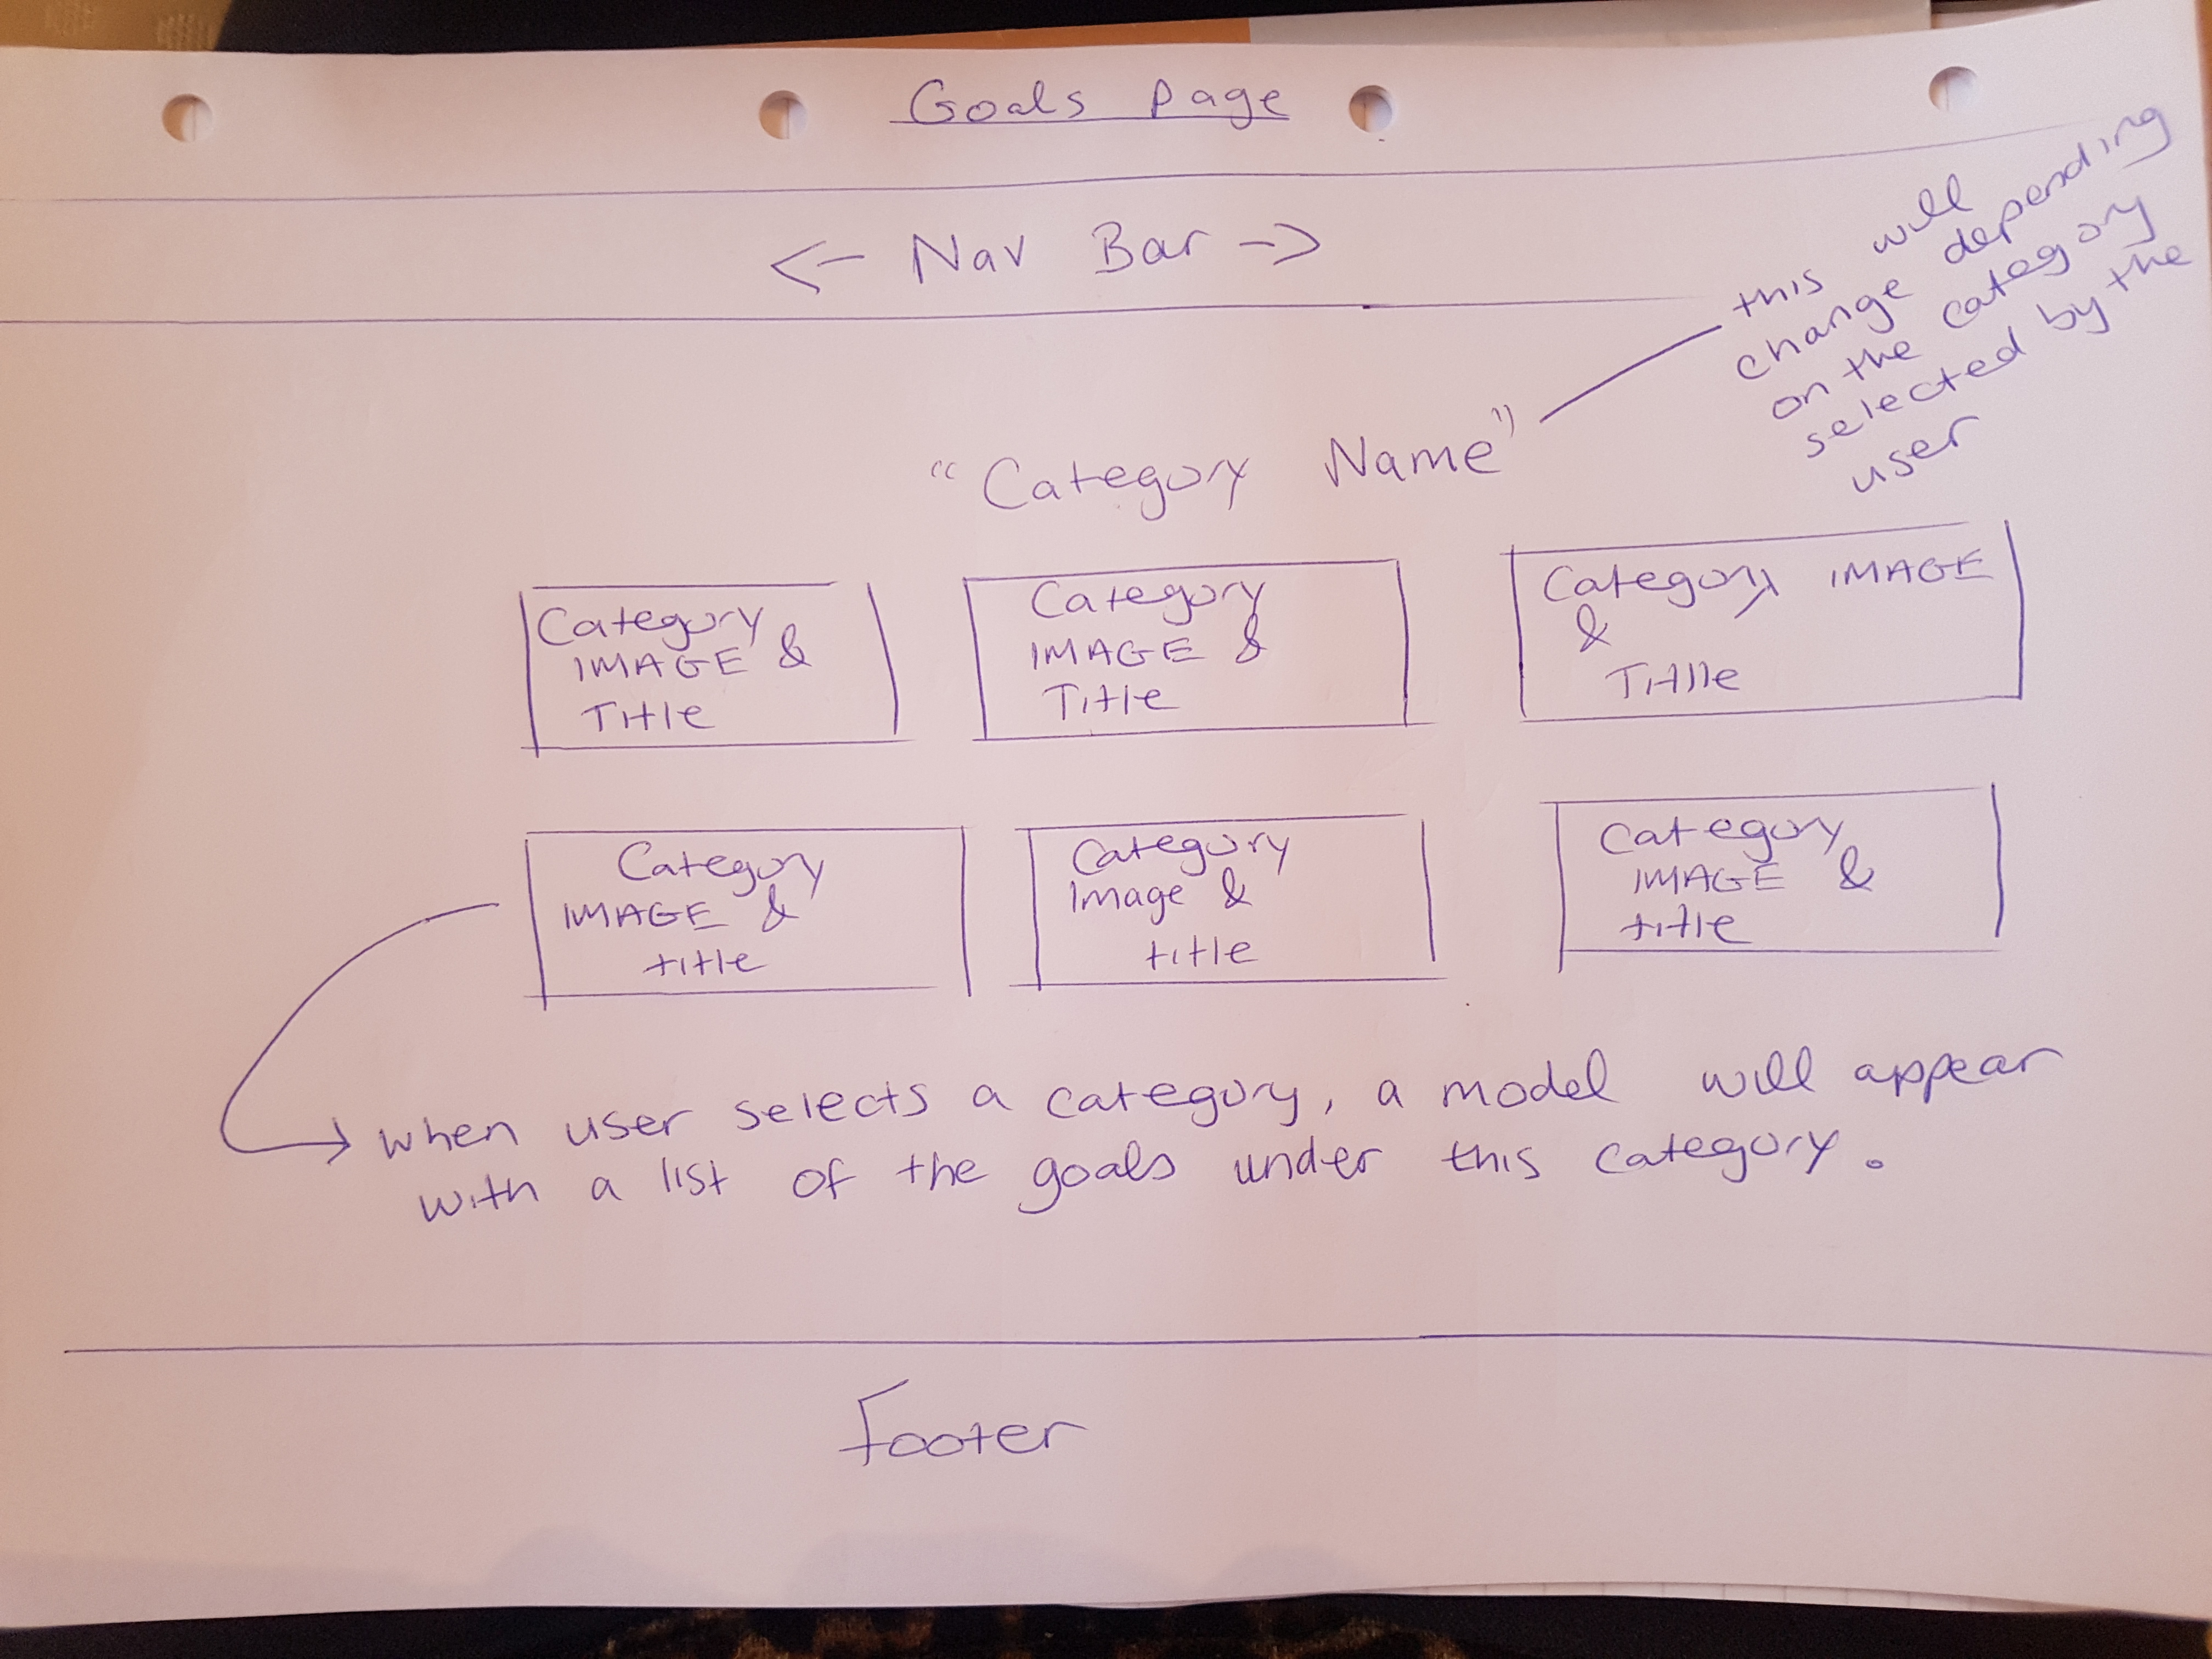 Goals Page
<- Nav Bar ->
"Category Name"
this will
change depending
on the category
selected by the
user
Category
IMAGE &
Title
Category
IMAGE &
Title
Category IMAGE
&
Title
Category
IMAGE &
title
Category
Image &
title
Category
IMAGE &
title
When user selects a category, a model will appear
with a list of the goals under this category.
Footer